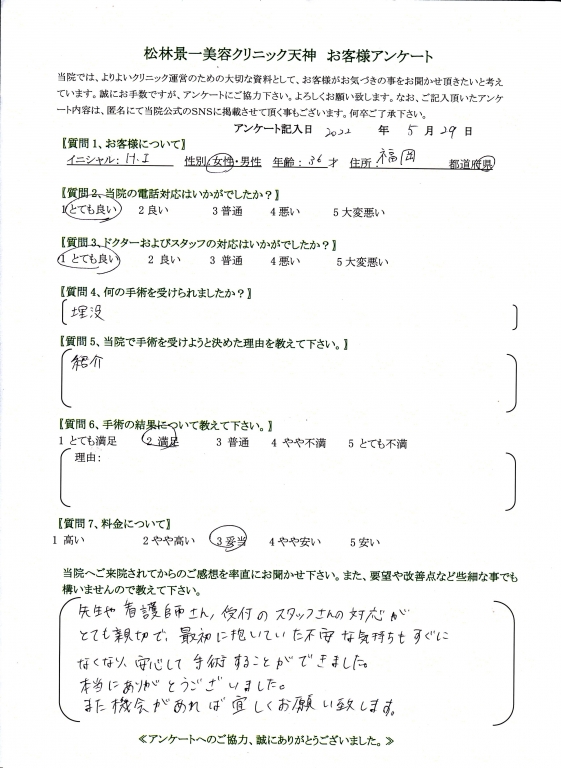 松林景一美容クリニック天神　お客様アンケート
当院では、よりよいクリニック運営のための大切な資料として、お客様がお気づきの事をお聞かせ頂きたいと考え
ています。誠にお手数ですが、アンケートにご協力下さい。よろしくお願い致します。なお、ご記入頂いたアンケ
ート内容は、匿名にて当院公式のSNSに掲載させて頂く事もございます。何卒ご了承下さい。
アンケート記入日 2022 年 5 月 29 日
【質問 1、お客様について】
イニシャル： H.I 性別：女性・男性 年齢： 36 才 住所： 福岡 都道府県
【質問 2、当院の電話対応はいかがでしたか？】
1 とても良い 2 良い 3 普通 4 悪い 5 大変悪い
【質問 3、ドクターおよびスタッフの対応はいかがでしたか？】
1 とても良い 2 良い 3 普通 4 悪い 5 大変悪い
【質問 4、何の手術を受けられましたか？】
埋没
【質問 5、当院で手術を受けようと決めた理由を教えて下さい。】
紹介
【質問 6、手術の結果について教えて下さい。】
1 とても満足 2 満足 3 普通 4 やや不満 5 とても不満
理由：
【質問 7、料金について】
1 高い 2 やや高い 3 妥当 4 やや安い 5 安い
当院へご来院されてからのご感想を率直にお聞かせ下さい。また、要望や改善点など些細な事でも
構いませんので教えて下さい。
先生や看護師さん、受付のスタッフさんの対応が
とても親切で、最初に抱いていた不安な気持ちもすぐに
なくなり、安心して手術することができました。
本当にありがとうございました。
また機会があれば宜しくお願い致します。
≪アンケートへのご協力、誠にありがとうございました。≫